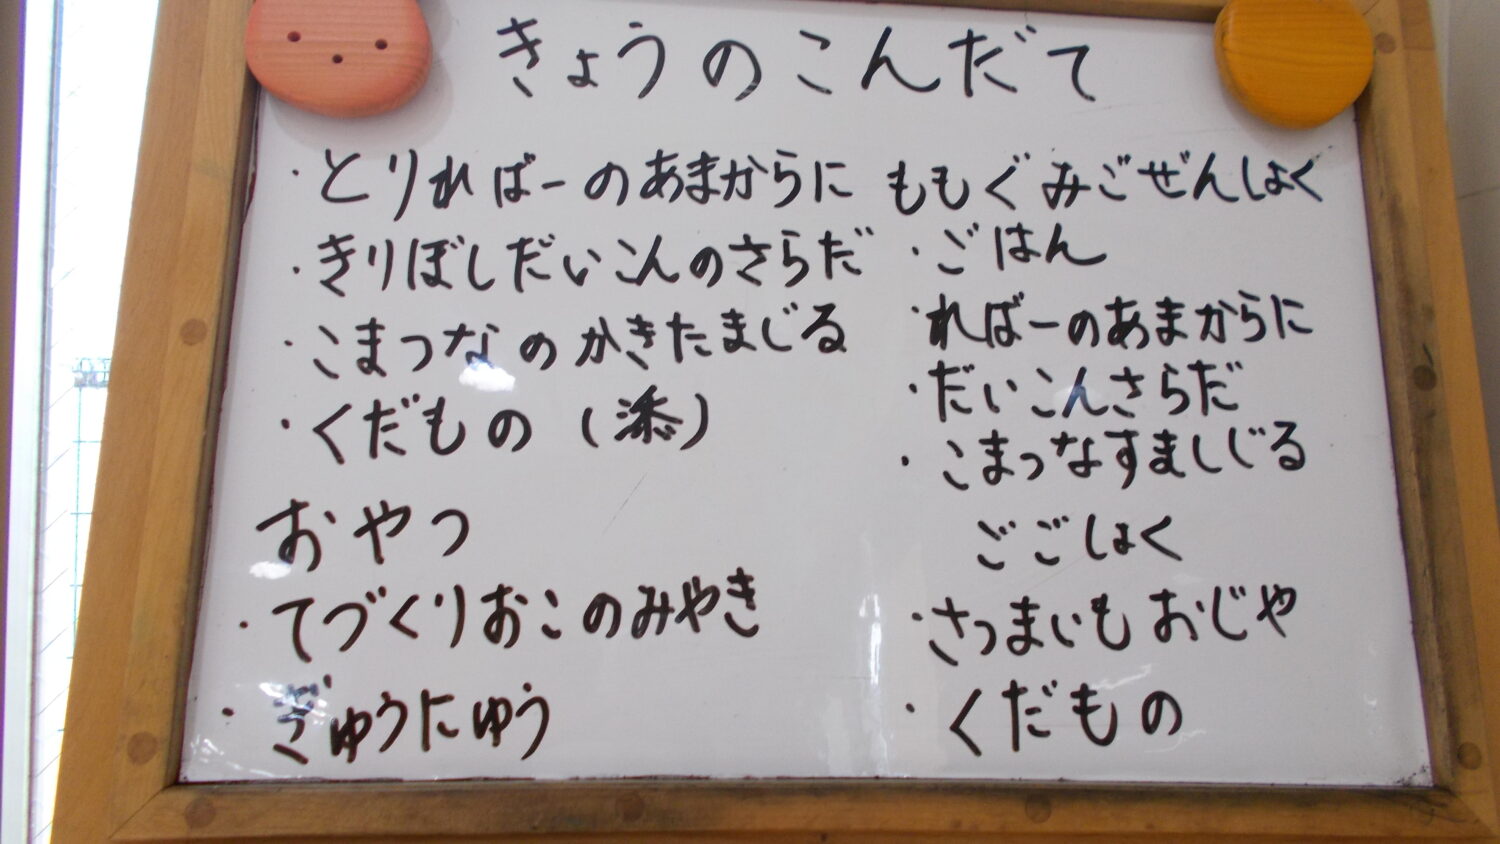 きょうのこんだて
・とりればーのあまからに
・きりぼしだいこんのさらだ
・こまつなのかきたまじる
・くだもの（添）
おやつ
・てづくりおこのみやき
・ぎゅうにゅう
ももぐみごぜんしょく
・ごはん
・ればーのあまからに
・だいこんさらだ
・こまつなすましじる
ごごしょく
・さつまいもおじや
・くだもの